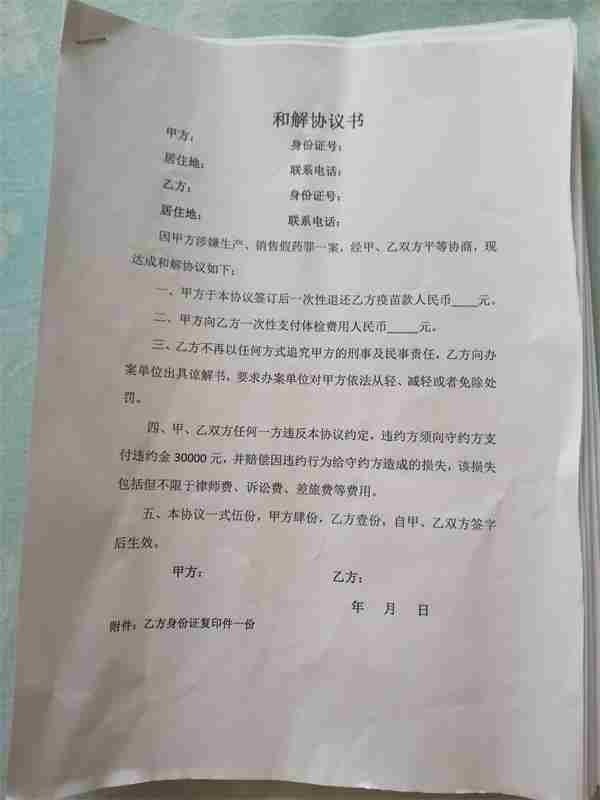 和解协议书
甲方： 身份证号：
居住地： 联系电话：
乙方： 身份证号：
居住地： 联系电话：
因甲方涉嫌生产、销售假药罪一案，经甲、乙双方平等协商，现
达成和解协议如下：
一、甲方于本协议签订后一次性退还乙方疫苗款人民币____元。
二、甲方向乙方一次性支付体检费用人民币_____元。
三、乙方不再以任何方式追究甲方的刑事及民事责任，乙方向办
案单位出具谅解书，要求办案单位对甲方依法从轻、减轻或者免除处
罚。
四、甲、乙双方任何一方违反本协议约定，违约方须向守约方支
付违约金 30000 元，并赔偿因违约行为给守约方造成的损失，该损失
包括但不限于律师费、诉讼费、差旅费等费用。
五、本协议一式伍份，甲方肆份，乙方壹份，自甲、乙双方签字
后生效。
甲方： 乙方：
年 月 日
附件：乙方身份证复印件一份